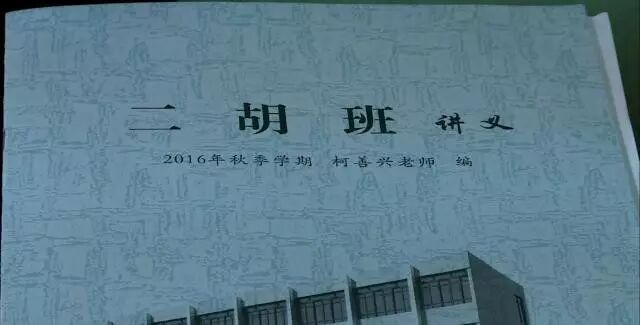 二胡班 讲义
2016年秋季学期 柯善兴老师 编